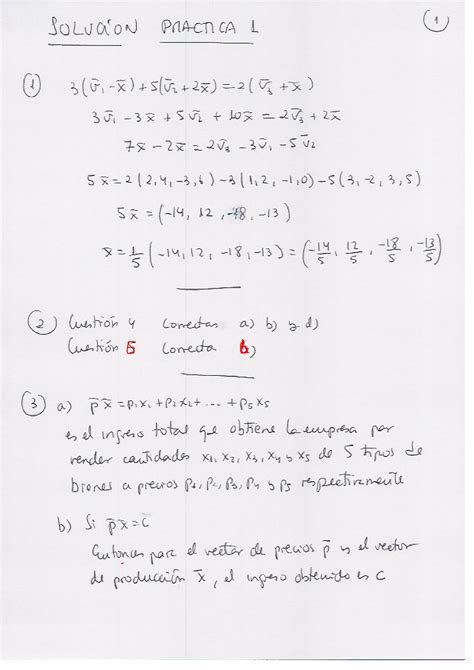 SOLUCIÓN PRACTICA 1
1
1 3(v̄₁ - x̄) + 5(v̄₂ + 2x̄) = 2(v̄₃ + x̄)
3v̄₁ - 3x̄ + 5v̄₂ + 10x̄ = 2v̄₃ + 2x̄
7x̄ - 2x̄ = 2v̄₃ - 3v̄₁ - 5v̄₂
5x̄ = 2(2,4,-3,6) - 3(1,2,-1,0) - 5(3,-2,3,5)
5x̄ = (-14, 12, -18, -13)
x̄ = 1/5 (-14, 12, -18, -13) = (-14/5, 12/5, -18/5, -13/5)
2) Cuestión 4 Correctas a) b) y d)
Cuestión 5 Correcta b)
3) a) p̄ x̄ = p₁x₁ + p₂x₂ + ... + p₅x₅
es el ingreso total que obtiene la empresa por
vender cantidades x₁, x₂, x₃, x₄ y x₅ de 5 tipos de
bienes a precios p₁, p₂, p₃, p₄ y p₅ respectivamente
b) Si p̄ x̄ = c
Entonces para el vector de precios p̄ y el vector
de producción x̄, el ingreso obtenido es c